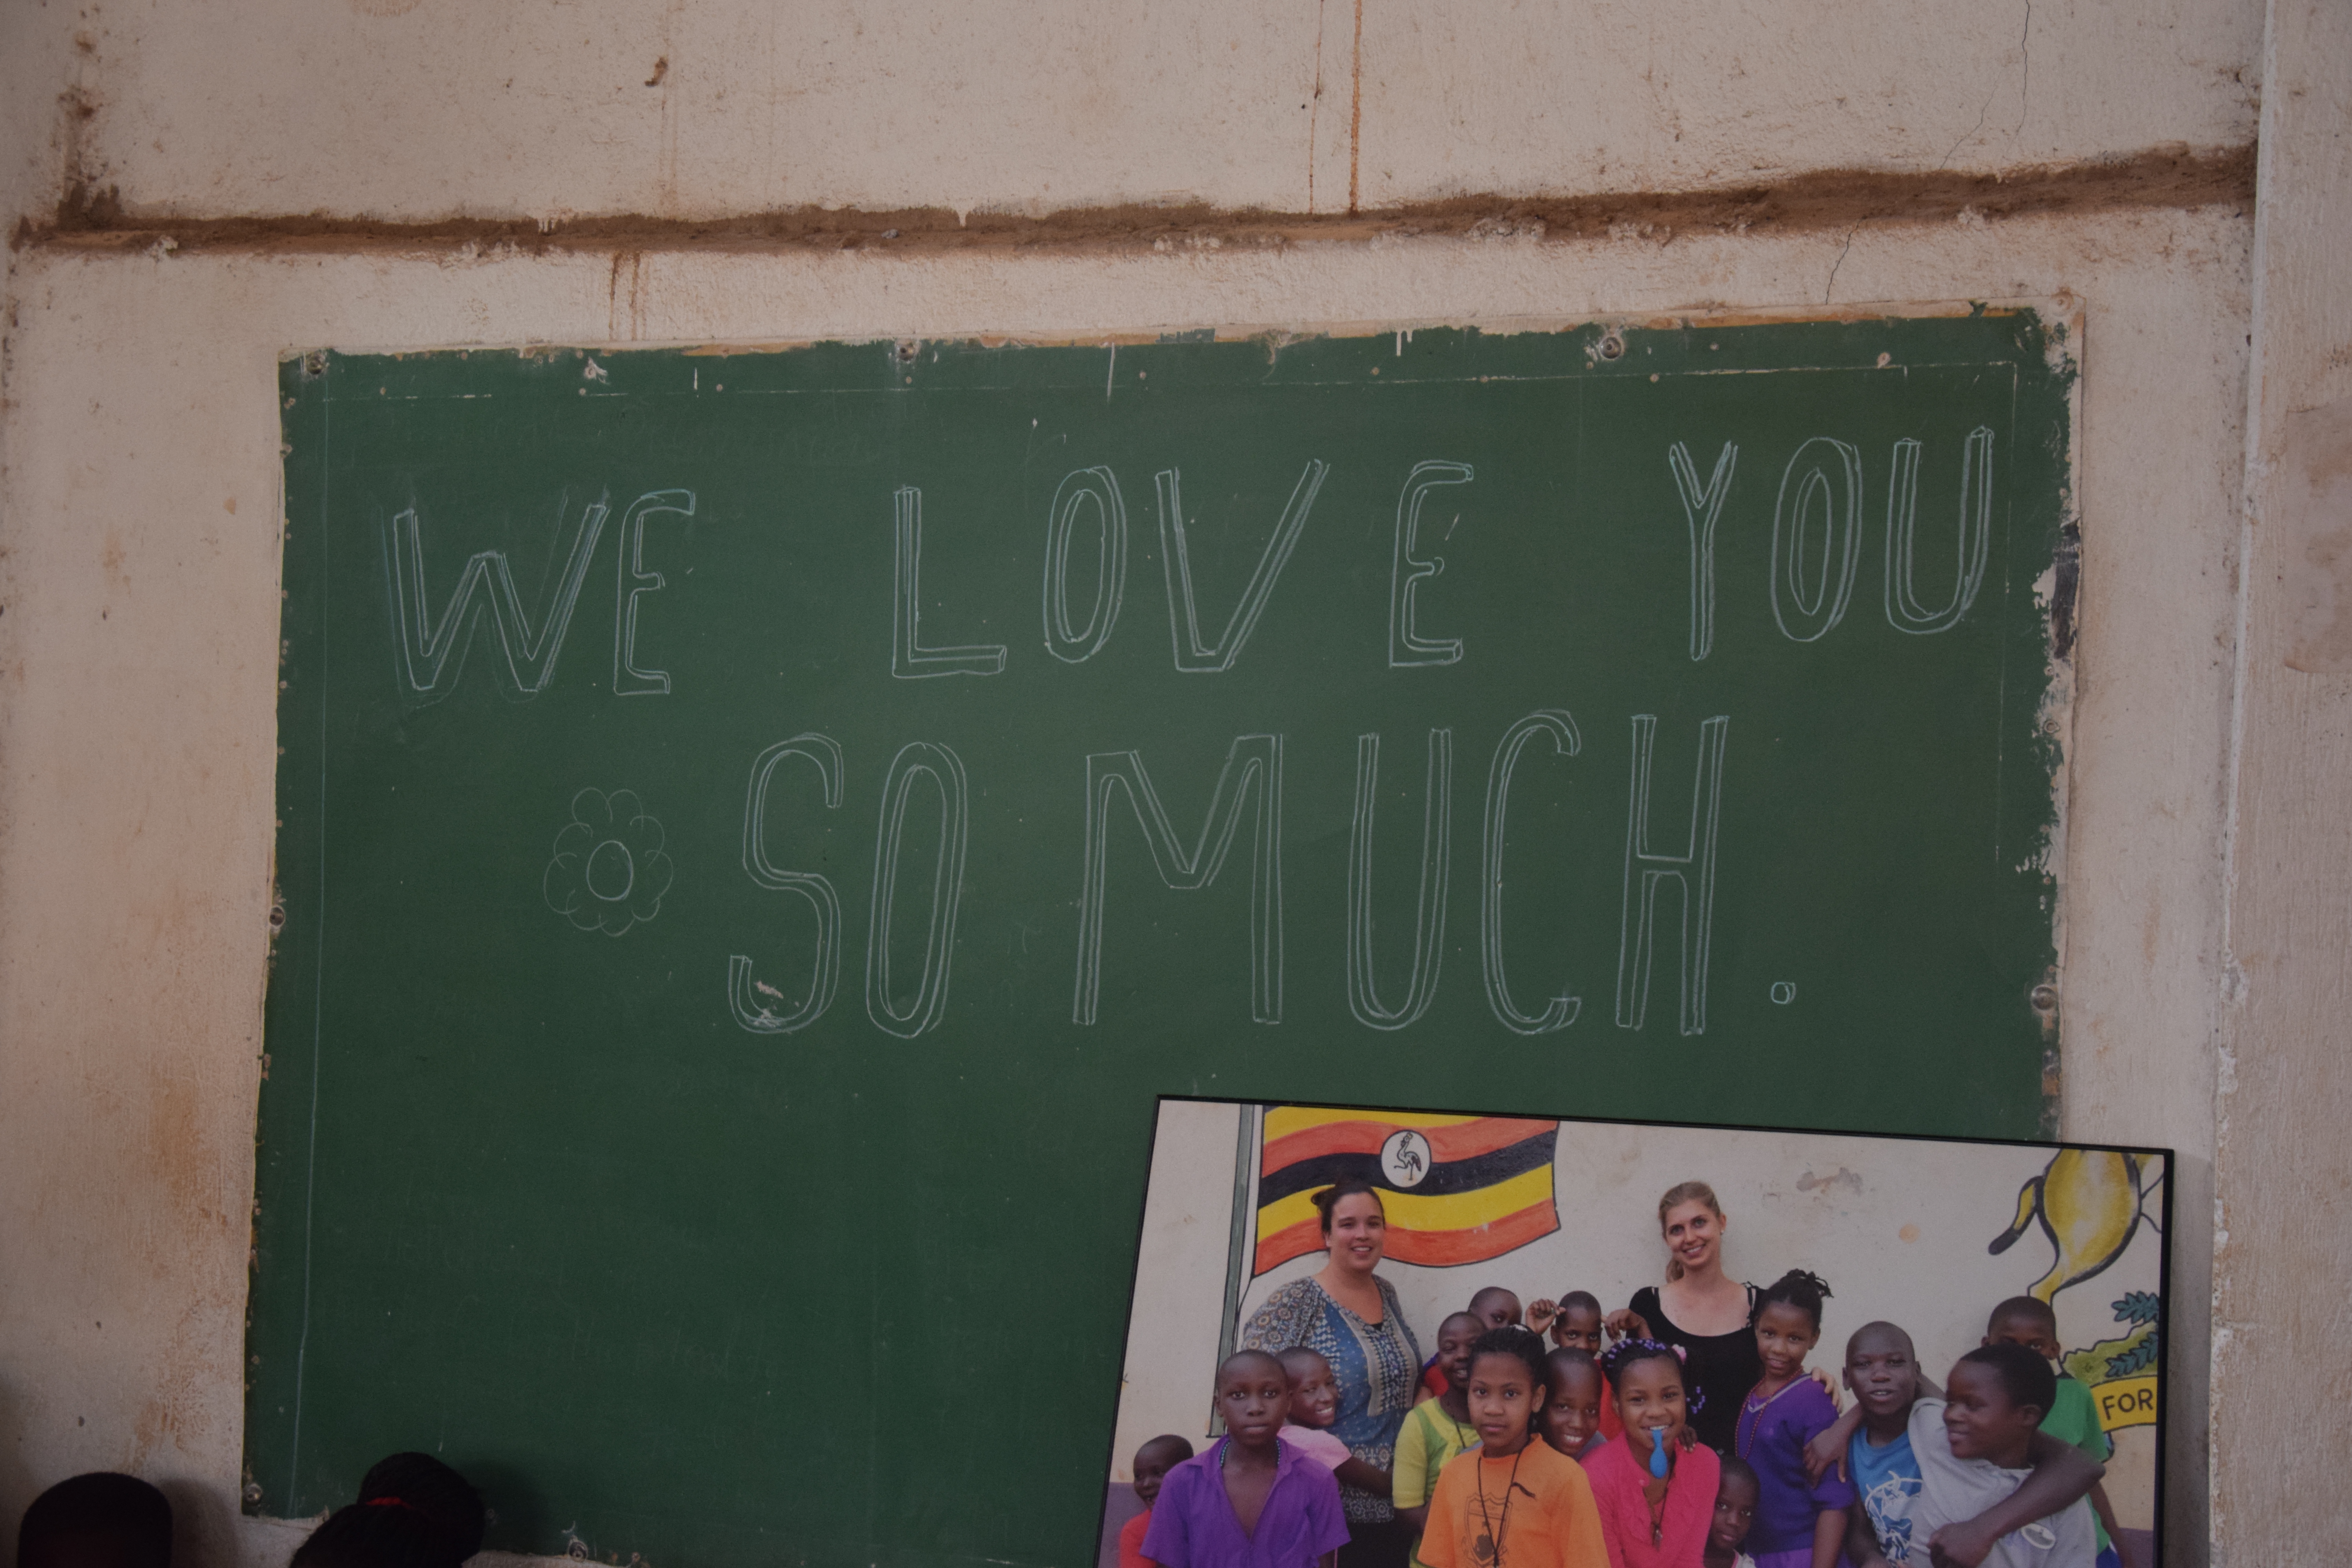 WE LOVE YOU
SO MUCH.
FOR